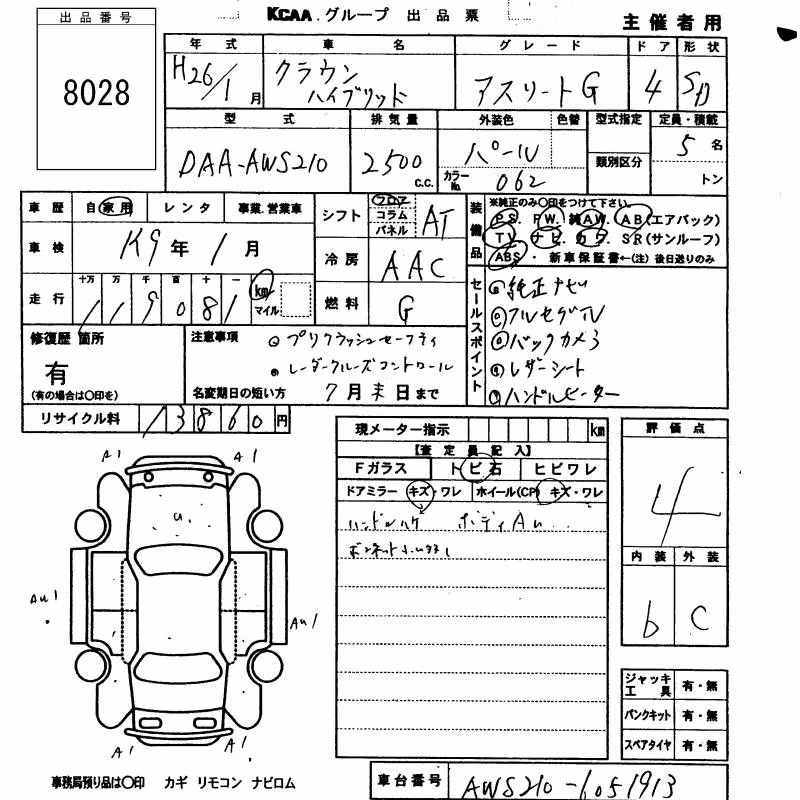 KCAA.グループ 出品票
主催者用
出品番号
8028
年式 車名 グレード ドア 形状
H26/1月 クラウン ハイブリッド アスリートG 4 SD
型式 排気量 外装色 色替 型式指定 定員・積載
DAA-AWS210 2500 C.C. パール 類別区分 5名
カラーNo. 062 トン
車歴 自家用 レンタ 事業.営業車
シフト フロア コラム パネル AT
装備品 ※純正のみ〇印をつけて下さい。
PS. PW. 純AW. AB(エアバック)
TV ナビ. カワ. SR(サンルーフ)
ABS・ 新車保証書←(注) 後日送りのみ
車検 K9年1月
冷房 AAC
走行 十万 万 千 百 十 一
119081 km マイル
燃料 G
セールスポイント
純正ナビ
フルセグTV
バックカメラ
レザーシート
ハンドルヒーター
修復歴 箇所
有
(有の場合は〇印を)
注意事項
プリクラッシュセーフティ
レーダークルーズコントロール
名変期日の短い方 7月末日まで
リサイクル料 13860円
現メーター指示 km
【査定員記入】
Fガラス トビ石 ヒビワレ
ドアミラー キズ・ワレ ホイール(CP) キズ・ワレ
ハンドルハゲ ボディAu
評価点
4
内装 外装
b C
A1 A1
u
Au1
Au1
A1 A1
ジャッキ工具 有・無
パンクキット 有・無
スペアタイヤ 有・無
事務局預り品は〇印 カギ リモコン ナビロム
車台番号 AWS210-6051913